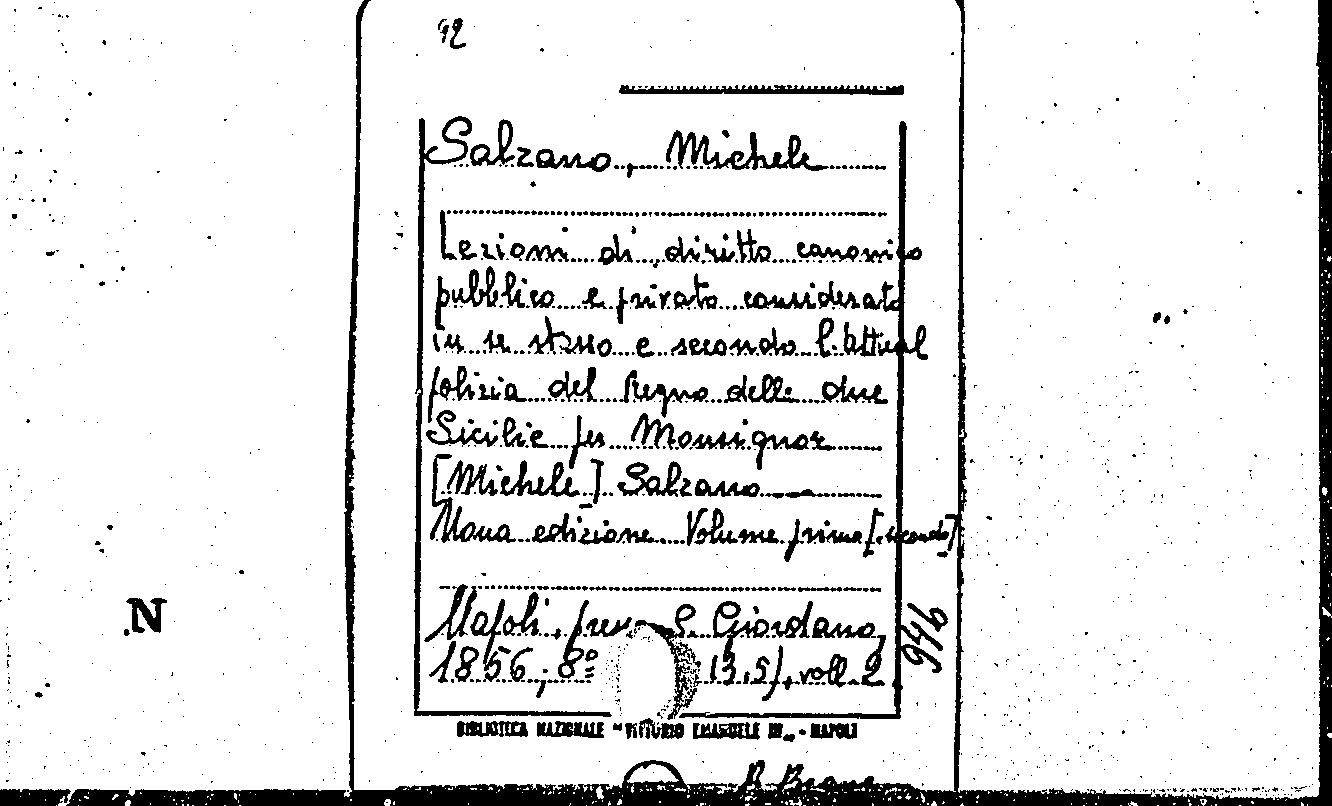 92
Salzano, Michele
Lezioni di diritto canonico
pubblico e privato considerato
in se stesso e secondo l'attual
polizia del Regno delle due
Sicilie per Monsignor
[Michele] Salzano
Nona edizione. Volume primo [secondo]
Napoli, presso S. Giordano,
1856, 8º 13,5), voll. 2.
946
N
BIBLIOTECA NAZIONALE "VITTORIO EMANUELE III" - NAPOLI